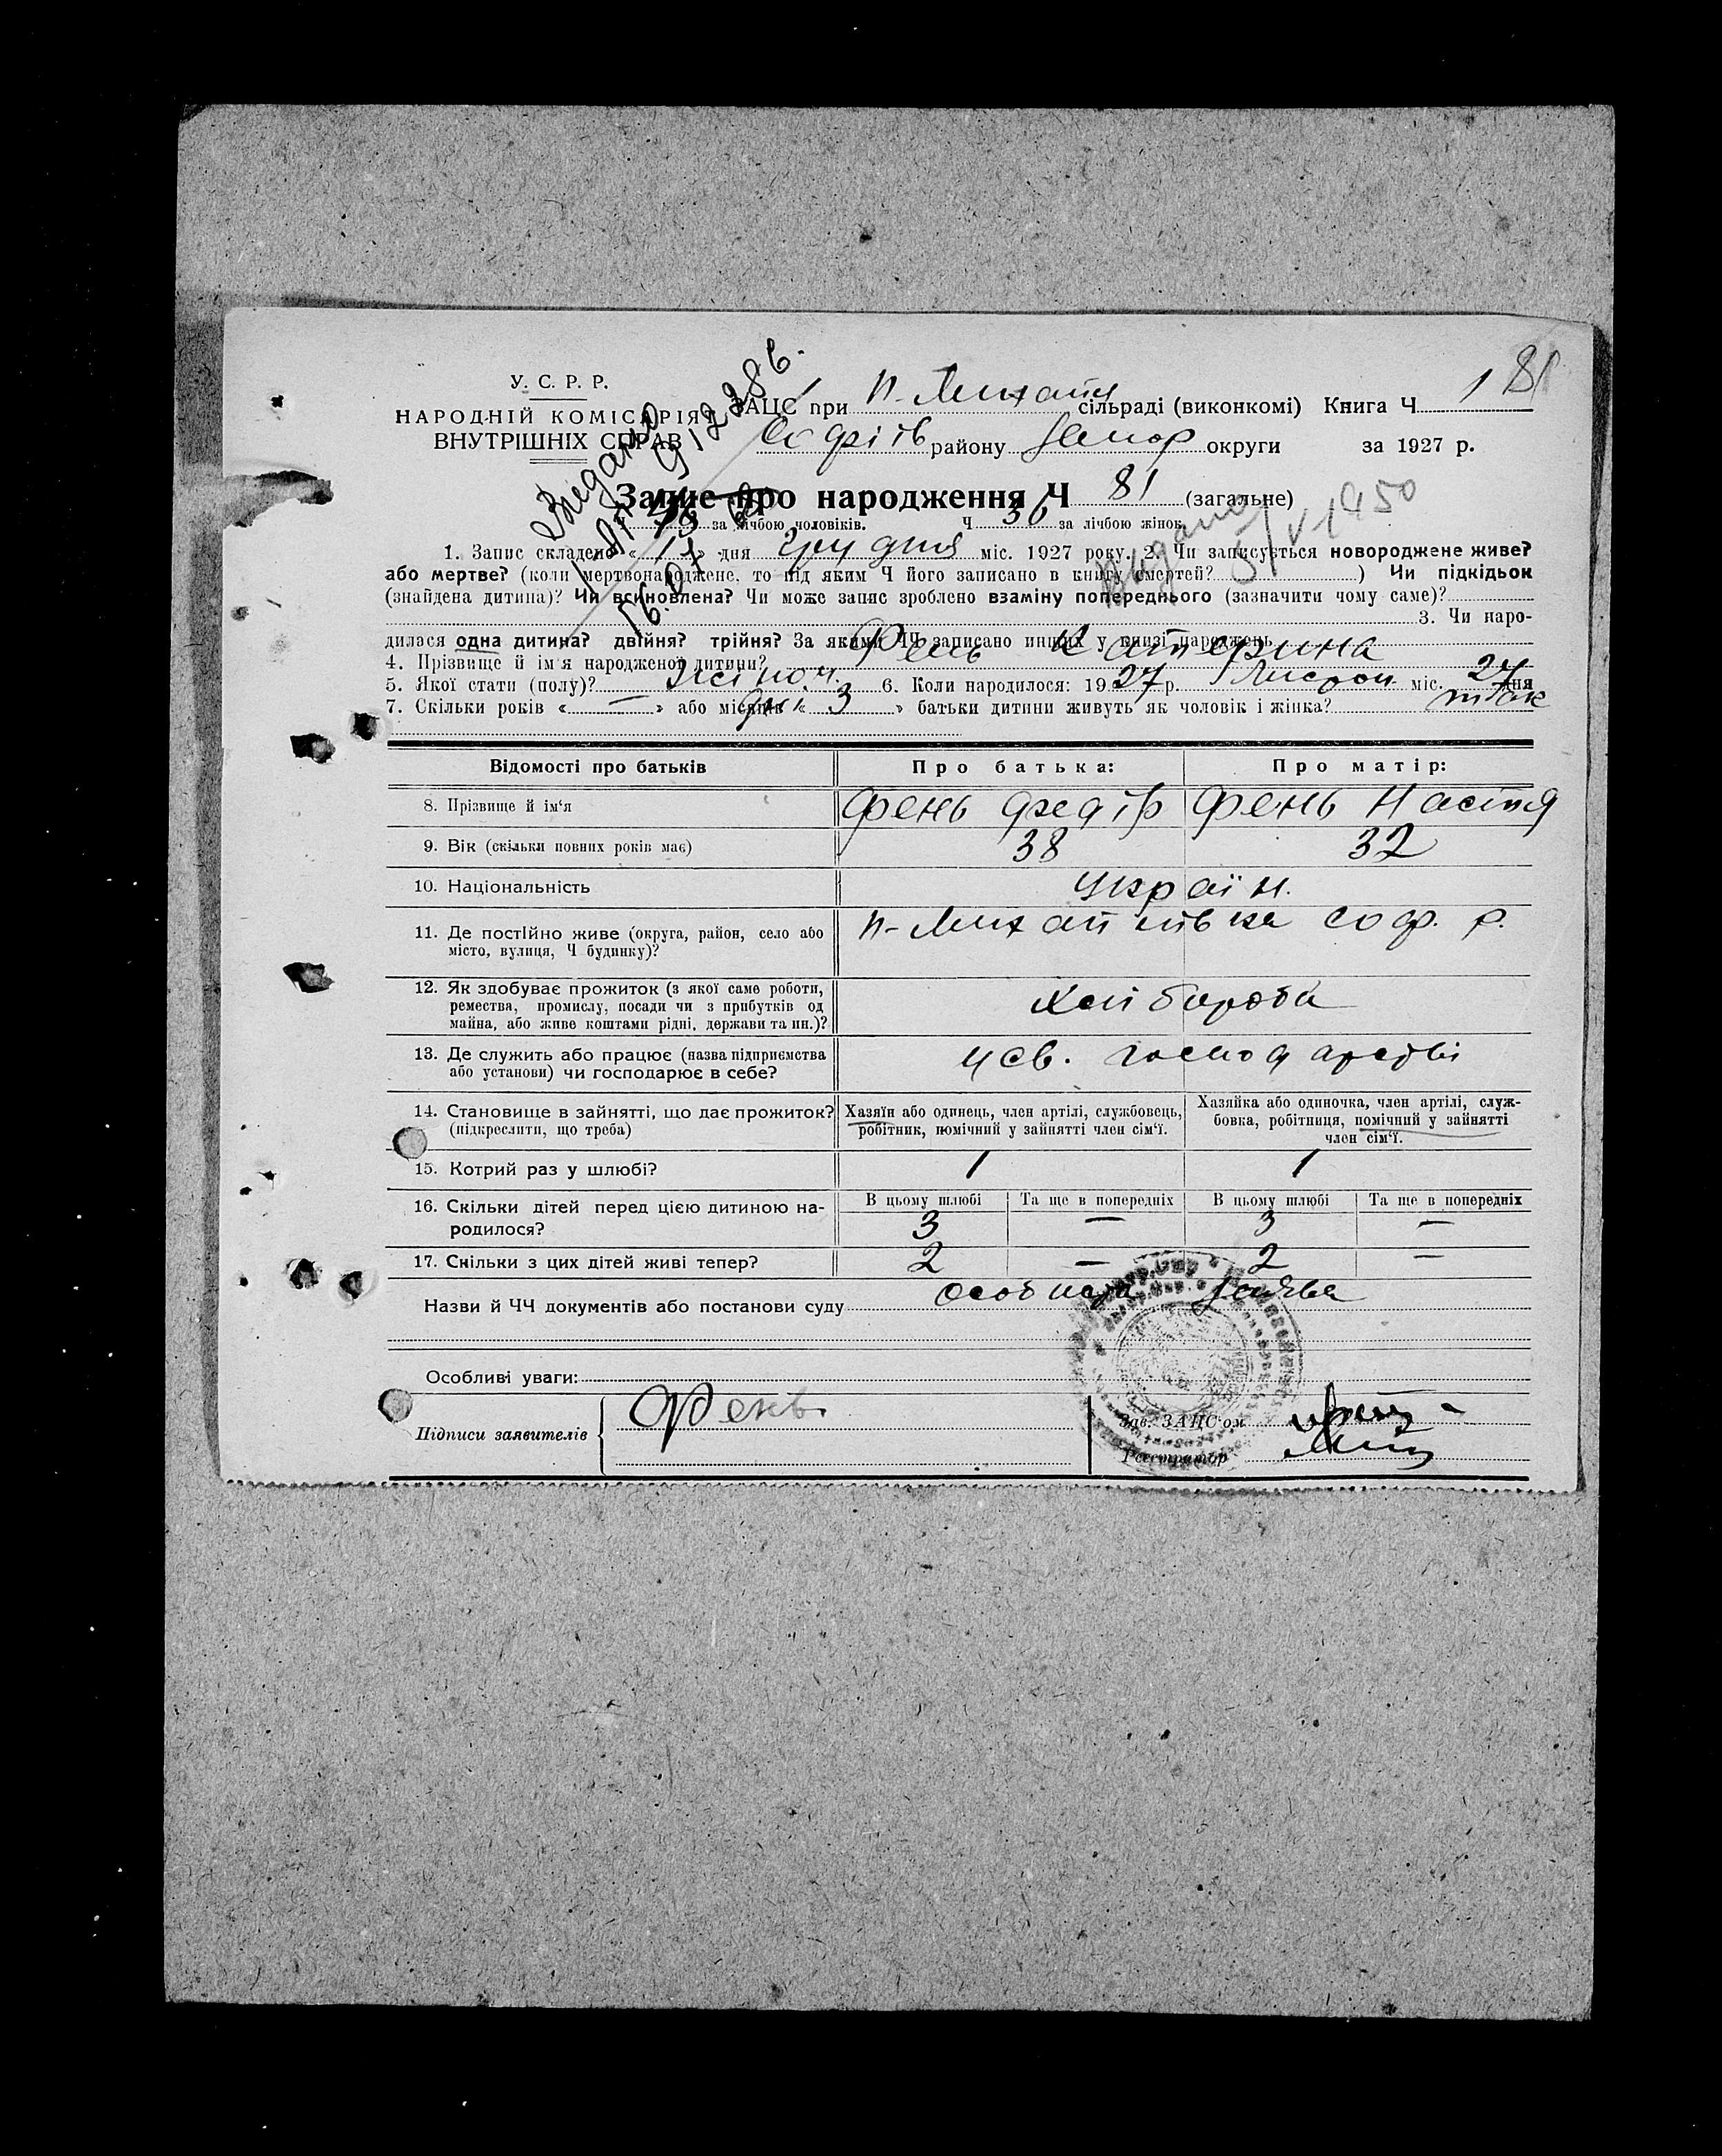 81
У. С. Р. Р.
НАРОДНІЙ КОМІСАРІЯТ
ВНУТРІШНІХ СПРАВ
ЗАЦС при п-Михайл сільраді (виконкомі) Книга Ч 1
Софіїв району Запор округи за 1927 р.
Видано
Запис про народження Ч 81 (загальне)
Ч за лічбою чоловіків. Ч 36 за лічбою жінок.
Видано 5/V 1950
1. Запис складено « » дня грудня міс. 1927 року. 2. Чи записується новороджене живе?
або мертве? (коли мертвонароджене, то під яким Ч його записано в книгу смертей? ) Чи підкідьок
(знайдена дитина)? Чи всиновлена? Чи може запис зроблено взаміну попереднього (зазначити чому саме)?
3. Чи наро-
дилася одна дитина? двійня? трійня? За якими ЧЧ записано инших у книзі народжень
4. Прізвище й ім'я народженої дитини? Фень Катерина
5. Якої стати (полу)? Жіноч. 6. Коли народилося: 1927 р. Листоп міс. 27 дня
7. Скільки років « — » або місяців « 3 » батьки дитини живуть як чоловік і жінка? так
Відомості про батьків Про батька: Про матір:
8. Прізвище й ім'я Фень Федір Фень Настя
9. Вік (скільки повних років має) 38 32
10. Національність Україн.
11. Де постійно живе (округа, район, село або п-Михайлівка Соф. р.
місто, вулиця, Ч будинку)?
12. Як здобуває прожиток (з якої саме роботи,
ремества, промислу, посади чи з прибутків од Хліборобст
майна, або живе коштами рідні, держави та ин.)?
13. Де служить або працює (назва підприємства у св. господарстві
або установи) чи господарює в себе?
14. Становище в зайнятті, що дає прожиток? Хазяїн або одинець, член артілі, службовець, Хазяйка або одиночка, член артілі, служ-
(підкреслити, що треба) робітник, помічний у зайнятті член сім'ї. бовка, робітниця, помічний у зайнятті
член сім'ї.
15. Котрий раз у шлюбі? 1 1
16. Скільки дітей перед цією дитиною на- В цьому шлюбі Та ще в попередніх В цьому шлюбі Та ще в попередніх
родилося? 3 — 3 —
17. Скільки з цих дітей живі тепер? 2 — 2 —
Назви й ЧЧ документів або постанови суду особиста заява
Особливі уваги:
Підписи заявителів Фень
Зав. ЗАЦС'ом
Реєстратор